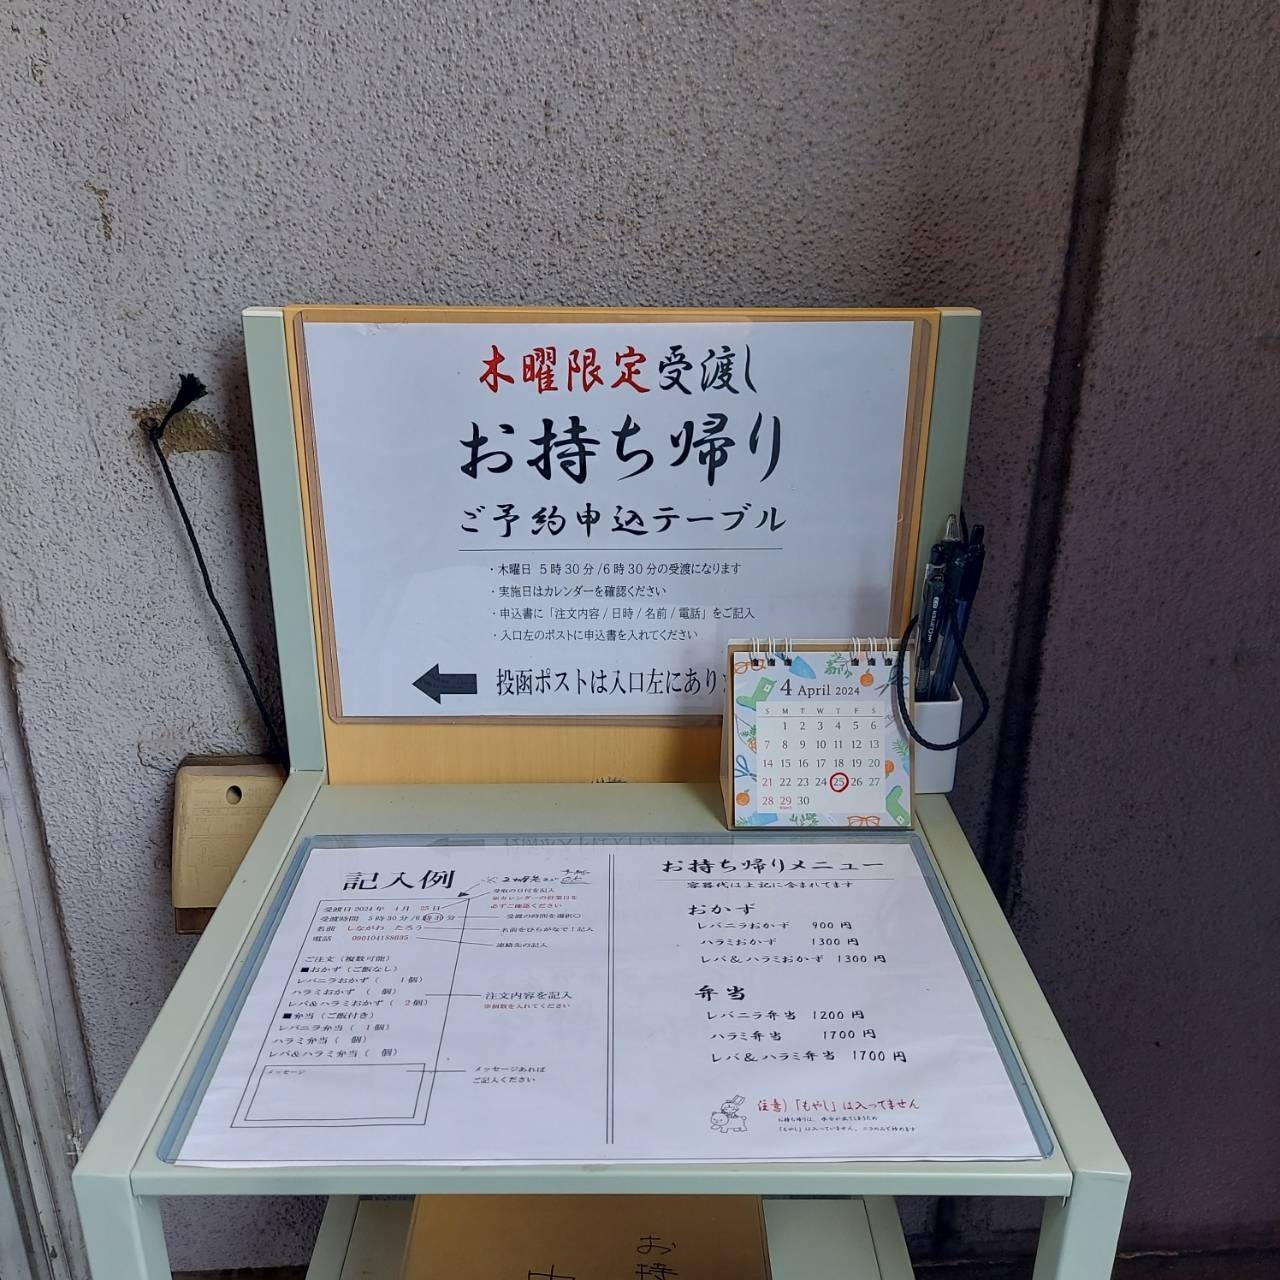 木曜限定受渡し
お持ち帰り
ご予約申込テーブル
・木曜日 5時30分/6時30分の受渡になります
・実施日はカレンダーを確認ください
・申込書に「注文内容/日時/名前/電話」をご記入
・入口左のポストに申込書を入れてください
投函ポストは入口左にあり
4 April 2024
S M T W T F S
1 2 3 4 5 6
7 8 9 10 11 12 13
14 15 16 17 18 19 20
21 22 23 24 25 26 27
28 29 30
記入例
受渡日2024年 4月 25日
受渡時間 5時30分/6時30分
名前 しながわ たろう
電話 090104188635
ご注文(複数可能)
■おかず(ご飯なし)
レバニラおかず( 1個)
ハラミおかず ( 個)
レバ&ハラミおかず( 2個)
■弁当(ご飯付き)
レバニラ弁当( 1個)
ハラミ弁当( 個)
レバ&ハラミ弁当( 個)
メッセージ
受取の日付を記入
※カレンダーの営業日を
必ずご確認ください
受渡の時間を選択〇
名前をひらがなで!記入
連絡先の記入
注文内容を記入
※個数を入れてください
メッセージあれば
ご記入ください
お持ち帰りメニュー
容器代は上記に含まれてます
おかず
レバニラおかず 900円
ハラミおかず 1300円
レバ&ハラミおかず 1300円
弁当
レバニラ弁当 1200円
ハラミ弁当 1700円
レバ&ハラミ弁当 1700円
注意)「もやし」は入ってません
お持ち帰りは、水分が出てしまうため
「もやし」は入っていません。ニラのみで炒めます
お持